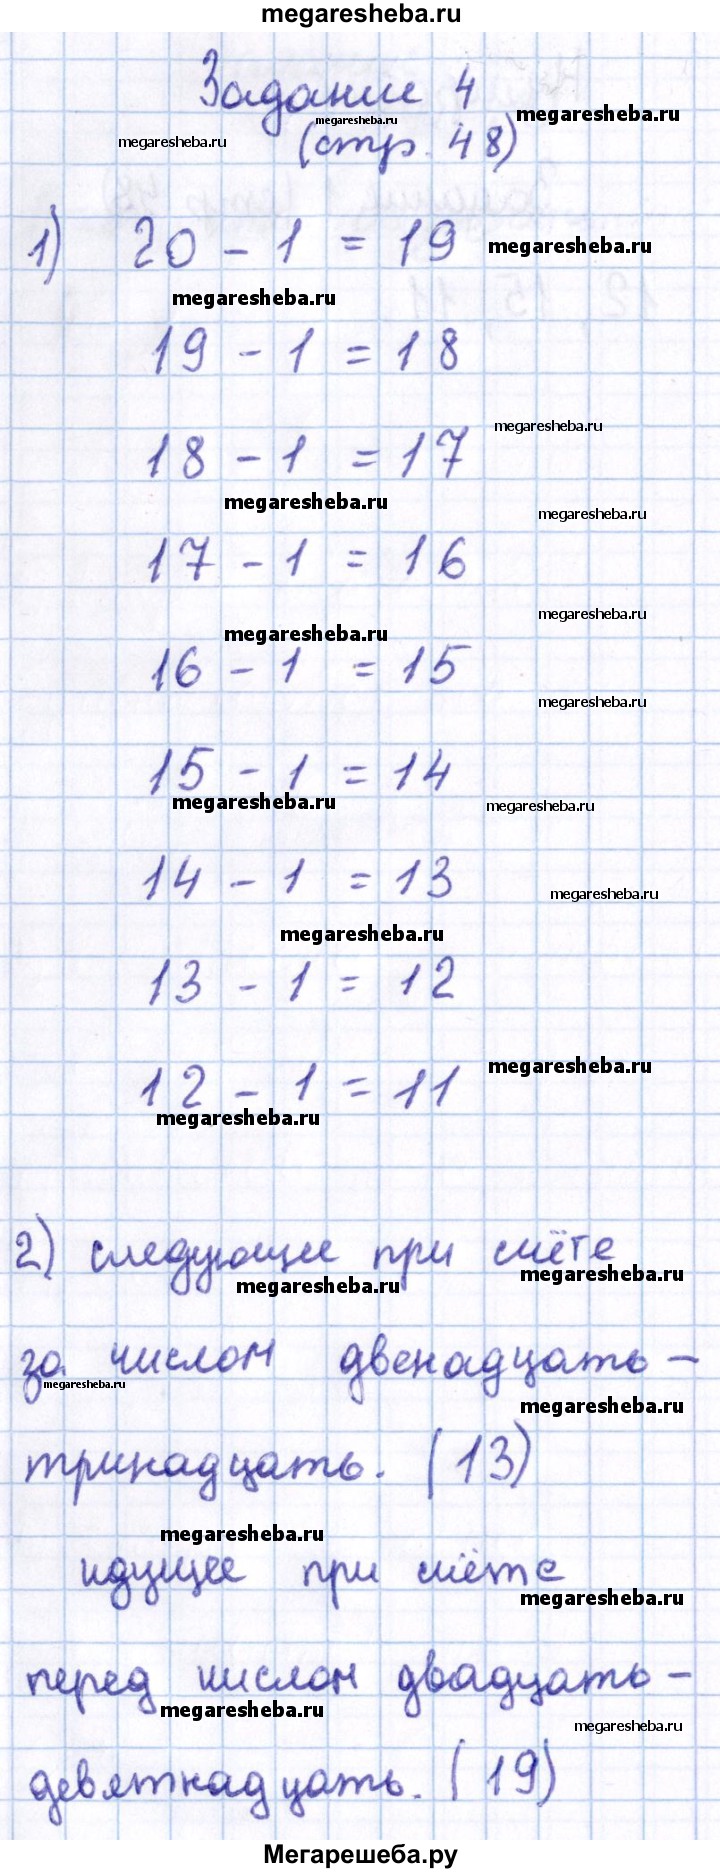 megaresheba.ru
Задание 4
megaresheba.ru
megaresheba.ru
megaresheba.ru
(стр. 48)
1) 20 - 1 = 19
megaresheba.ru
megaresheba.ru
19 - 1 = 18
megaresheba.ru
18 - 1 = 17
megaresheba.ru
megaresheba.ru
17 - 1 = 16
megaresheba.ru
megaresheba.ru
16 - 1 = 15
megaresheba.ru
15 - 1 = 14
megaresheba.ru
megaresheba.ru
14 - 1 = 13
megaresheba.ru
megaresheba.ru
13 - 1 = 12
megaresheba.ru
12 - 1 = 11
megaresheba.ru
2) следующее при счёте
megaresheba.ru
megaresheba.ru
за числом двенадцать -
megaresheba.ru
megaresheba.ru
тринадцать. (13)
megaresheba.ru
идущее при счёте
megaresheba.ru
перед числом двадцать -
megaresheba.ru
megaresheba.ru
девятнадцать. (19)
Мегарешеба.ру